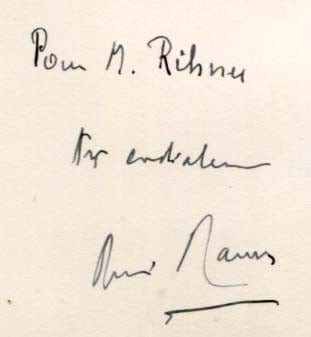 Pour M. Ribner
très cordialement
René